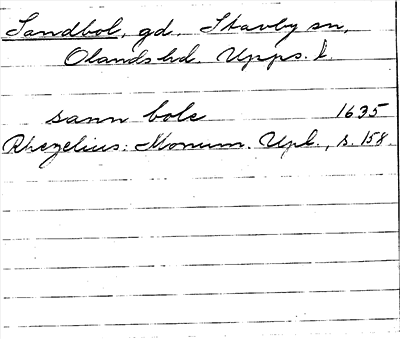 Sandbol, gd, Stavby sn,
Olands hd. Upps. l.
sann bole 1635
Rhezelius: Monum. Upl., s. 158.